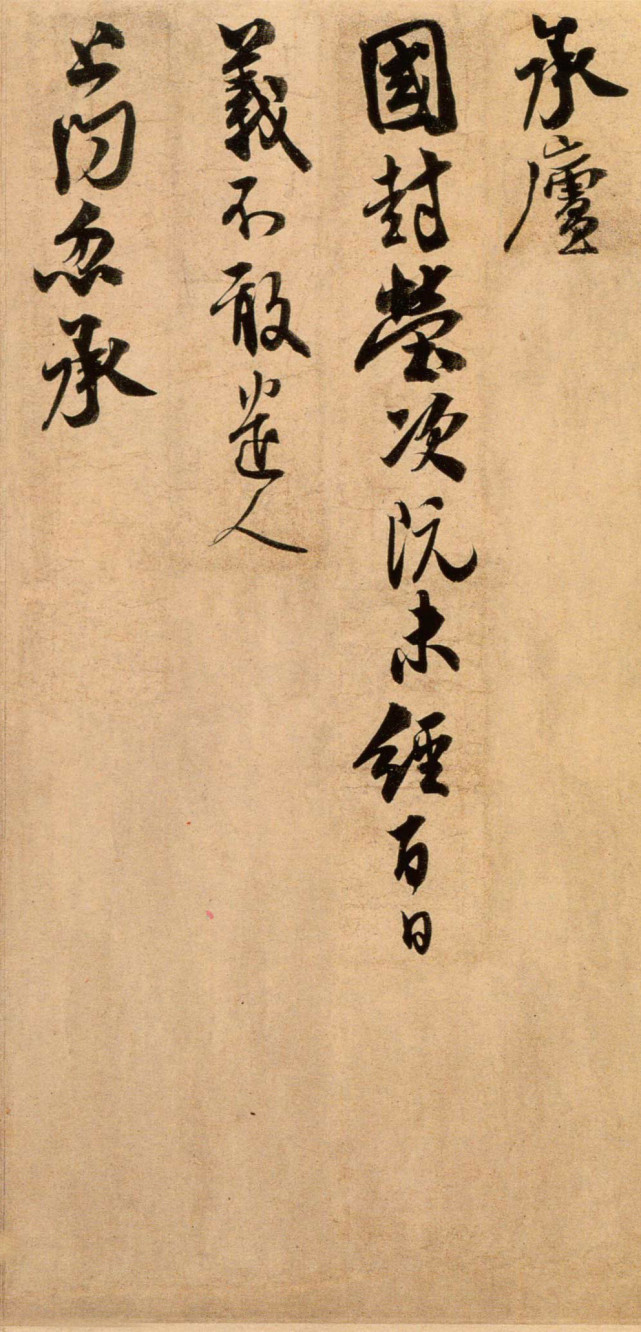 承廬
國封塋次既未經百日
義不敢遣人
上問忽承